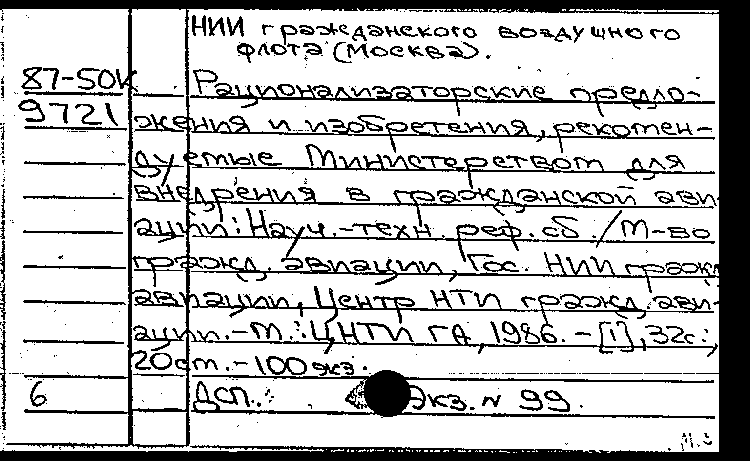 НИИ гражданского воздушного
флота (Москва).
87-50К Рационализаторские предло-
9721 жения и изобретения, рекомен-
дуемые Министерством для
внедрения в гражданской ави-
ации: Науч.-техн. реф. сб. / М-во
гражд. авиации, Гос. НИИ гражд.
авиации, Центр НТИ гражд. ави-
ации. - М.: ЦНТИ ГА, 1986. - [1], 32с.;
20см. - 100 экз.
6 ДСП. Экз. № 99.